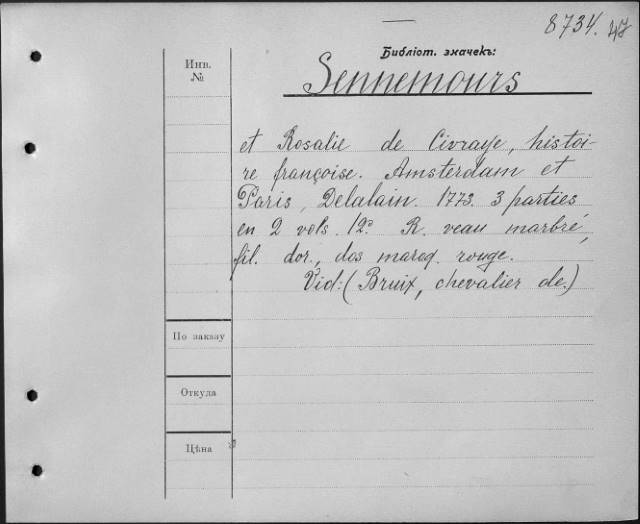 8734. 47
Библіот. значекъ:
Инв.
№
Sennemours
et Rosalie de Civraye, histoi-
re françoise. Amsterdam et
Paris, Delalain. 1773. 3 parties
en 2 vols. 12º R. veau marbré,
fil. dor., dos maroq. rouge.
Vid: (Bruix, chevalier de.)
По заказу
Откуда
Цѣна